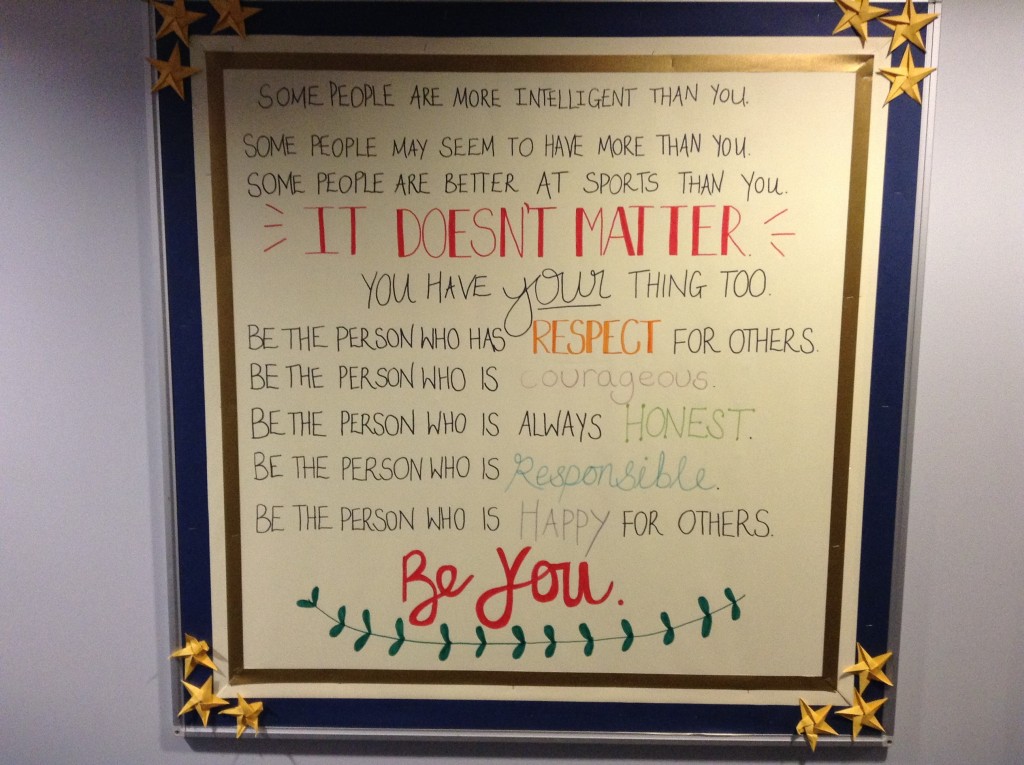 SOME PEOPLE ARE MORE INTELLIGENT THAN YOU.
SOME PEOPLE MAY SEEM TO HAVE MORE THAN YOU.
SOME PEOPLE ARE BETTER AT SPORTS THAN YOU.
IT DOESN'T MATTER.
YOU HAVE your THING TOO.
BE THE PERSON WHO HAS RESPECT FOR OTHERS.
BE THE PERSON WHO IS courageous.
BE THE PERSON WHO IS ALWAYS HONEST.
BE THE PERSON WHO IS Responsible.
BE THE PERSON WHO IS HAPPY FOR OTHERS.
Be You.